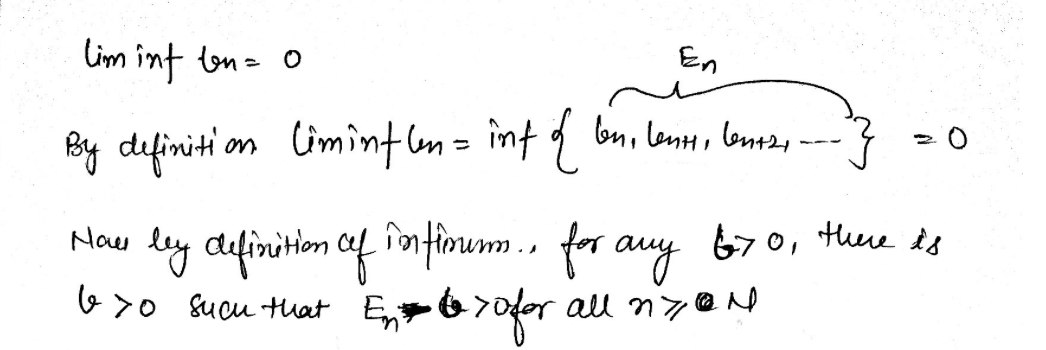 lim inf bn = 0
En
By definition liminf bn = inf { bn, bn+1, bn+2, ---- } = 0
Now by definition of infimum., for any b>0, there is
b >0 such that En b >0 for all n ≥ N